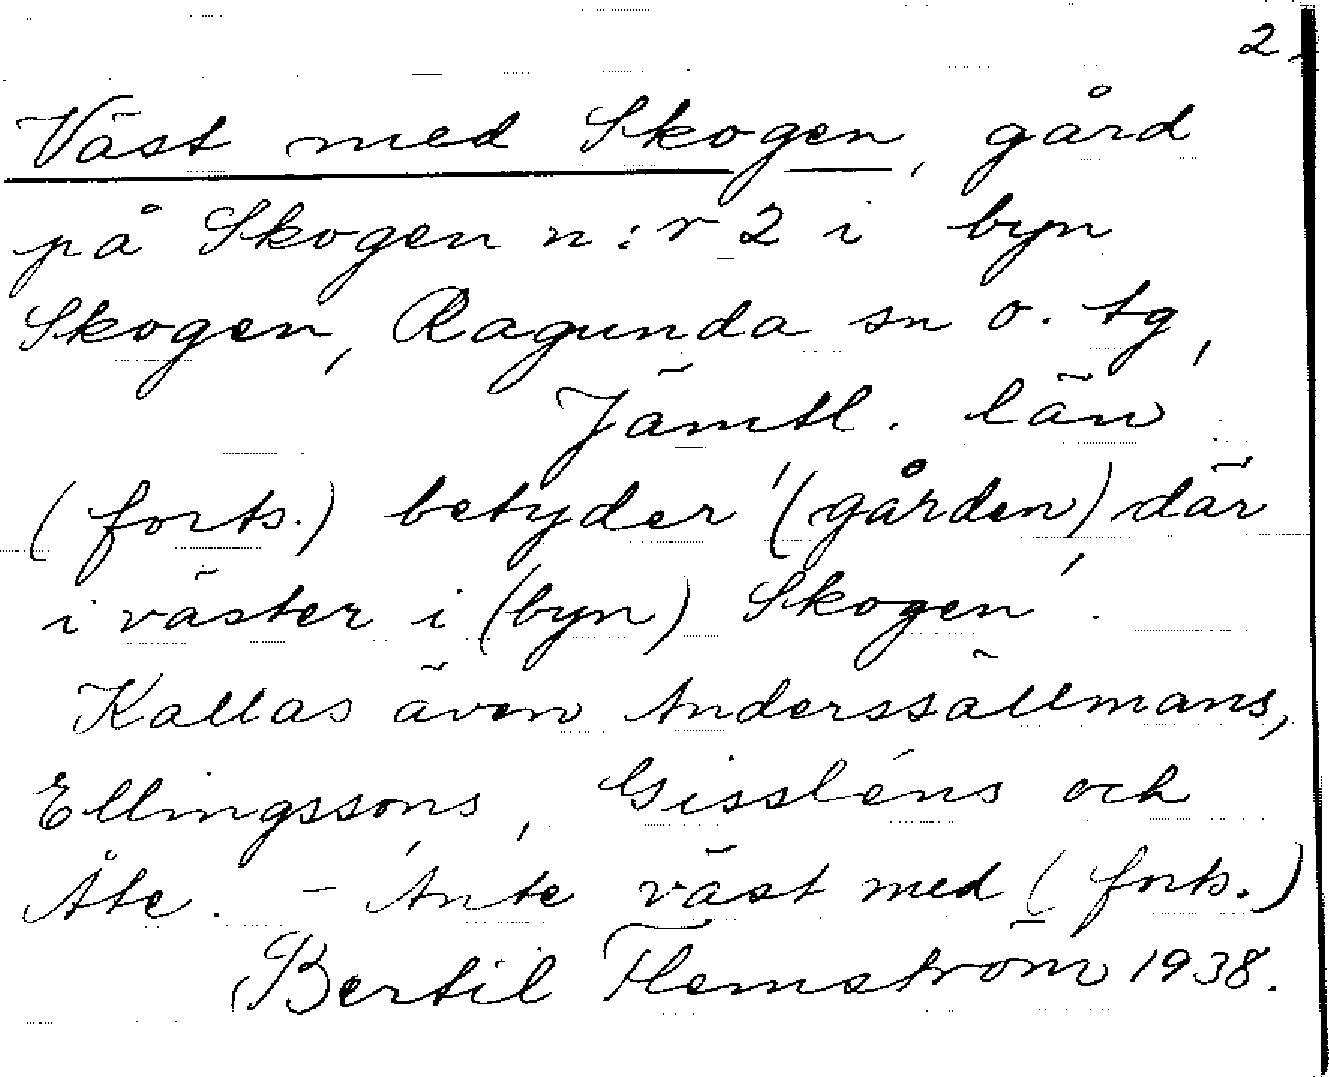 2.
Väst med Skogen, gård
på Skogen n:r 2 i byn
Skogen, Ragunda sn o. tg,
Jämtl. län
(forts.) betyder '(gården) där
i väster i (byn) Skogen'.
Kallas även Anderssällmans,
Ellingssons, Gissléns och
Åte. - 'Ante väst med (forts.)
Bertil Flemström 1938.